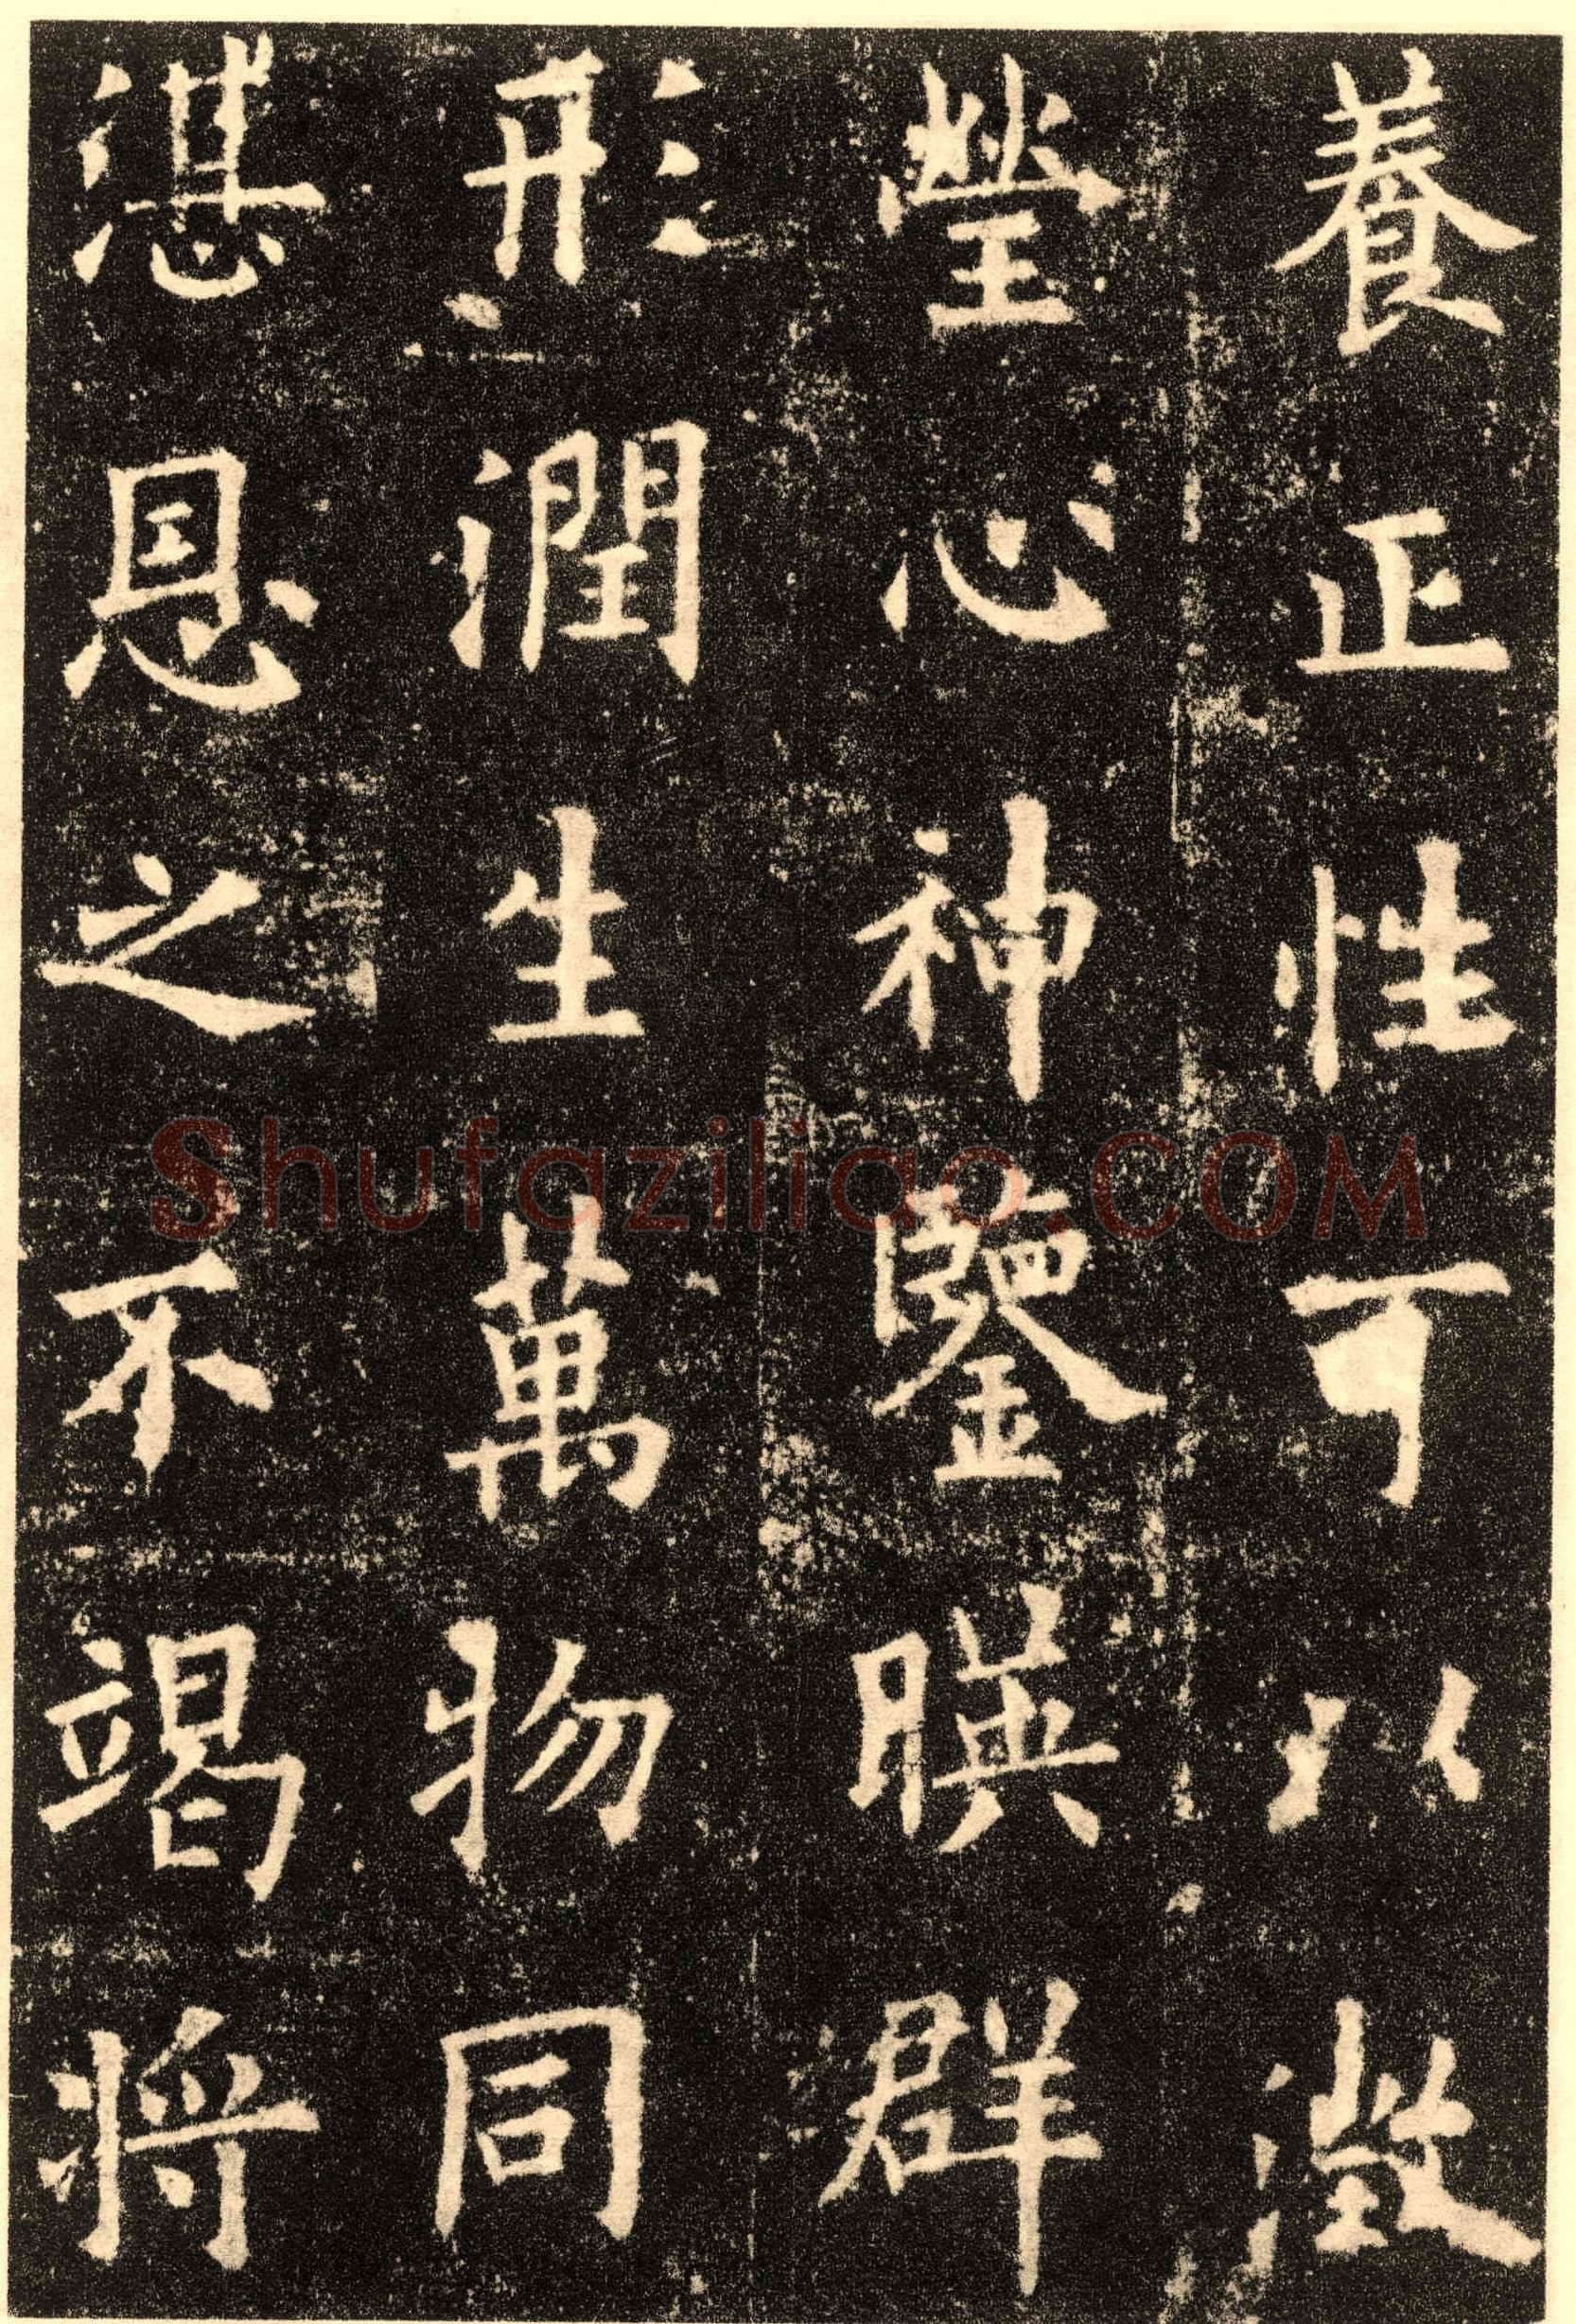 養正性可以澂
瑩心神鑒暎群
形潤生萬物同
湛恩之不竭將
Shufaziliao.COM